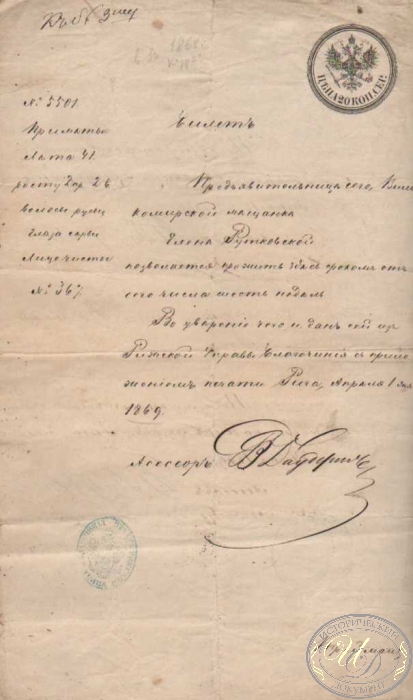 ЦѢНА 20 КОП. СЕР.
1868
№ 5501
Билетъ
Примѣты
Лѣта 41
росту 2 ар. 2 в
волосы русы
глаза сѣры
Лицо чисто
№ 367
Предъявительница сего, Вилькомирской мѣщанкѣ
Елена Рутковской
позволяется прожить здѣсь срокомъ отъ
сего числа шесть недѣль
Во увѣреніе чего и данъ сей изъ
Рижской Управы Благочинія съ приложеніемъ печати Рига, Апрѣля 1 дня
1869.
Асессоръ
ИСТОРИЧЕСКИЙ
ДОКУМЕНТ
ИД